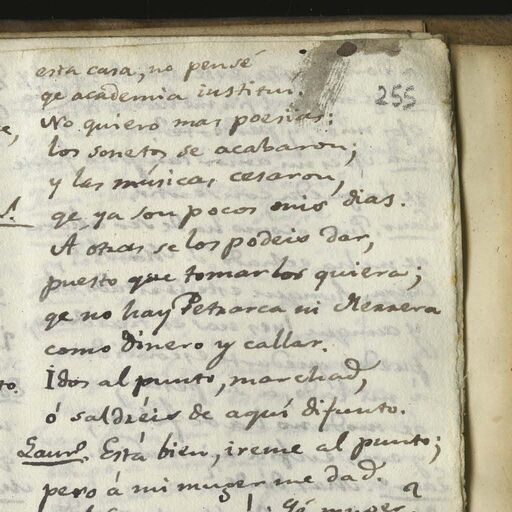 esta casa, no pensé
255
qe academia institui.
No quiero mas poesias:
los sonetos se acabaron;
y las músicas cesaron,
qe ya son pocos mis dias.
A otras se los podeis dar,
puesto que tomarlos quiera;
qe no hay Petrarca ni Herrera
como dinero y callar.
Idos al punto, marchad,
ó saldréis de aquí difunto.
Laurº. Está bien, ireme al punto;
pero á mi muger me dad.
qé muger